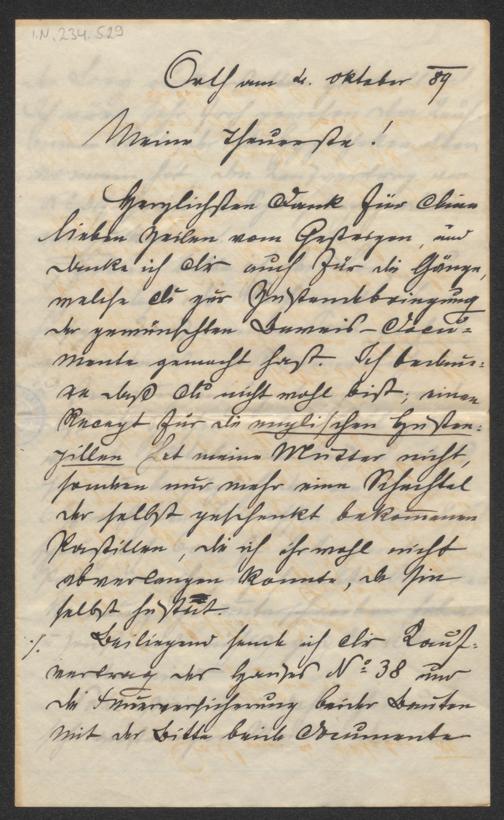 I.N. 234.529
Orth am 2. Oktober 89
Meine Theuerste!
Herzlichsten Dank für Deine
lieben Zeilen vom Gestrigen, und
danke ich Dir auch für die Gänge,
welche Du zur Zustandebringung
der gewünschten Beweis-Docu-
mente gemacht hast. Ich bedau-
re daß Du nicht wohl bist; einen
Recept für die englischen Husten-
pillen hat meine Mutter nicht,
sondern nur mehr eine Schachtel
der selbst geschenkt bekommenen
Pastillen, die ich ihr wohl nicht
abverlangen konnte, da sie
selbst hustet.
./. Beiliegend sende ich Dir Kauf-
vertrag des Hauses No 38 und
die Feuerversicherung beider Bauten
mit der Bitte beide Documente